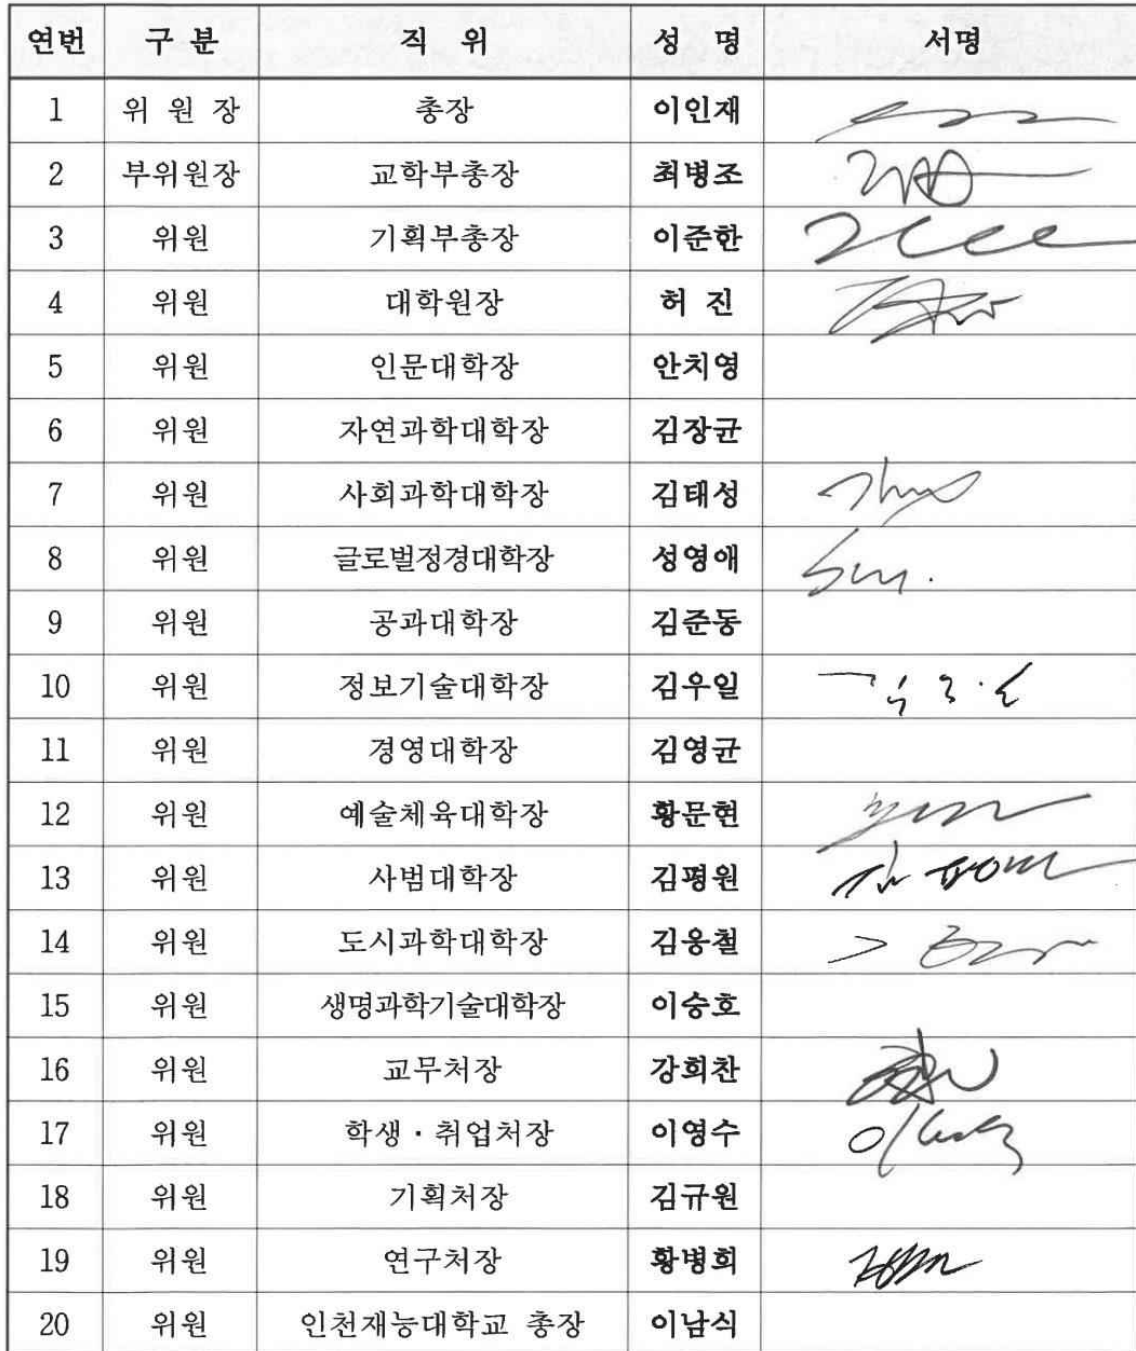 연번 구 분 직 위 성 명 서명
1 위 원 장 총장 이인재
2 부위원장 교학부총장 최병조
3 위원 기획부총장 이준한
4 위원 대학원장 허 진
5 위원 인문대학장 안치영
6 위원 자연과학대학장 김장균
7 위원 사회과학대학장 김태성
8 위원 글로벌정경대학장 성영애
9 위원 공과대학장 김준동
10 위원 정보기술대학장 김우일
11 위원 경영대학장 김영균
12 위원 예술체육대학장 황문현
13 위원 사범대학장 김평원
14 위원 도시과학대학장 김웅철
15 위원 생명과학기술대학장 이승호
16 위원 교무처장 강희찬
17 위원 학생 · 취업처장 이영수
18 위원 기획처장 김규원
19 위원 연구처장 황병희
20 위원 인천재능대학교 총장 이남식